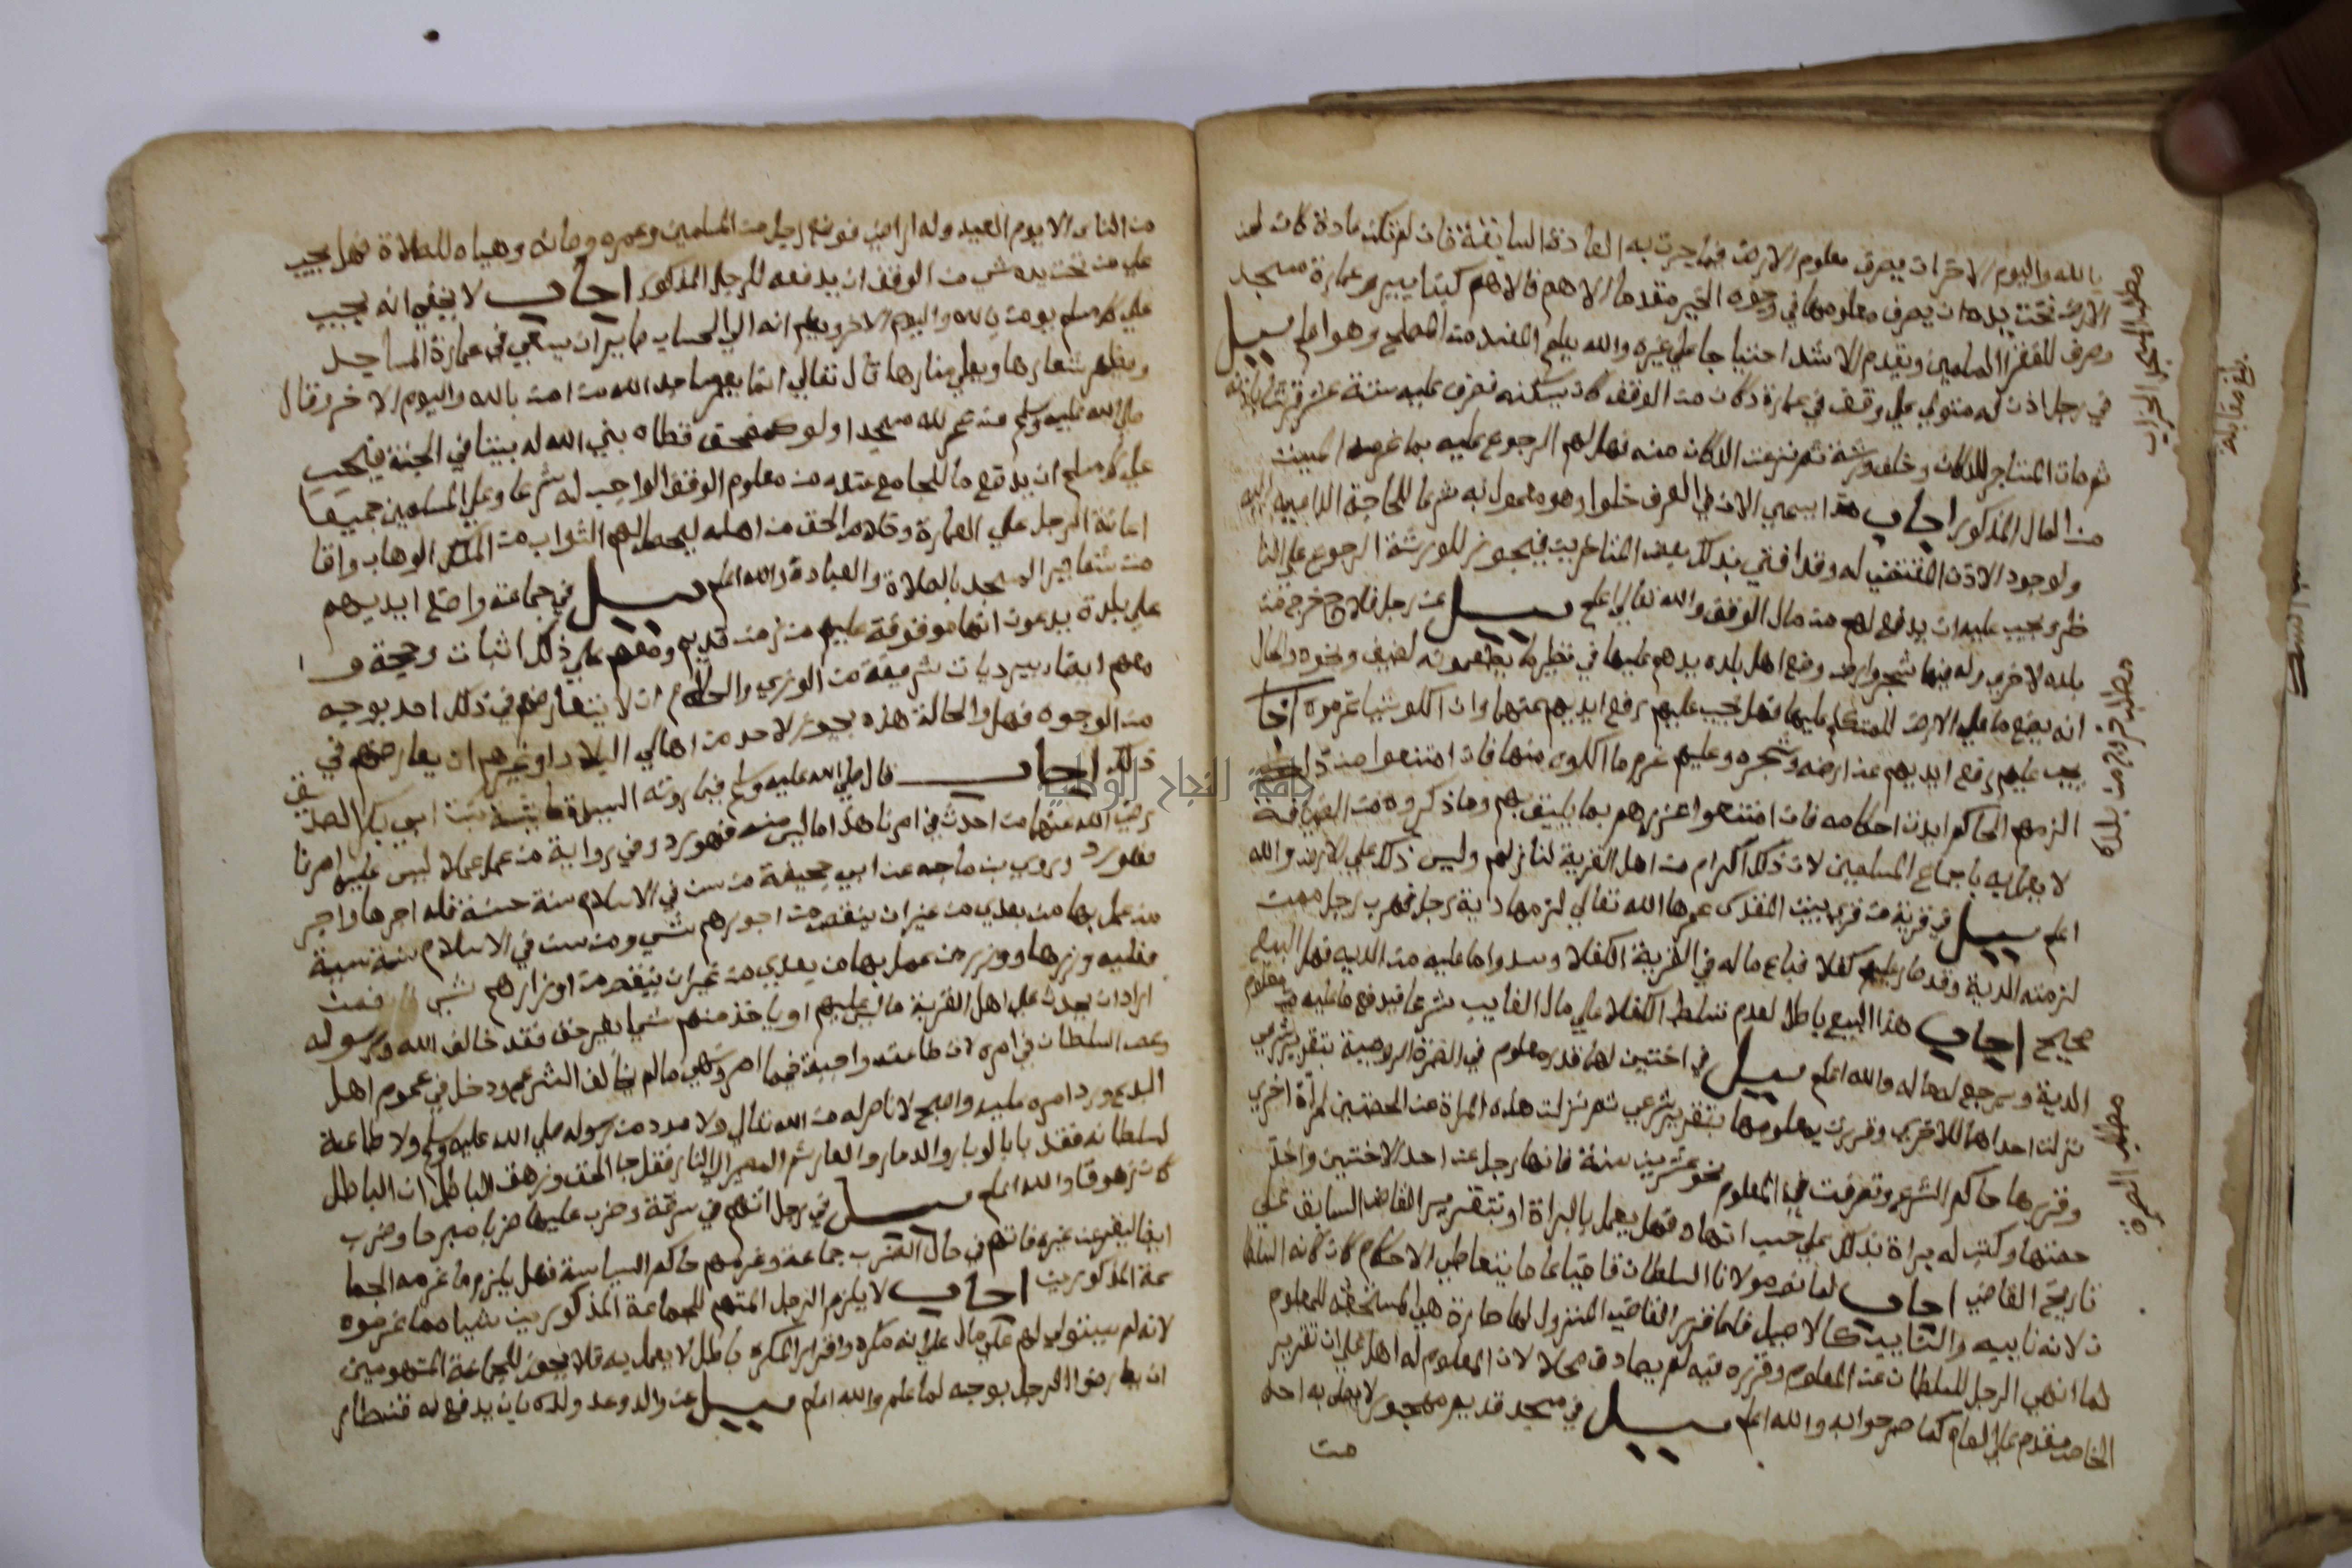 بالله واليوم الاخران يصرف معلوم الارض فيما جرت به العادة السابقة فان لم تكن عادة كان لمن
الارض تحت يده ان يصرف معلومها في وجوه الخير مقدما الاهم فالاهم كبنا بير وعمارة مسجد
وصرف للفقرا المسلمين ويقدم الاشد احتياجا علي غيره والله يعلم المفسد من المصلح وهو اعلم سيل
في رجل اذن له متولي علي وقف في عمارة دكان من الوقف كان يسكنه فصرف عليه ستة عشر قرشا باذنه
ثم مات المستاجر للدكان وخلف ورثة ثم نزعت الدكان منه فهل لهم الرجوع عليه بما غرمه المين
من المال المذكور اجاب هذا يسمي الان في العرف خلوا وهو معمول به شرعا للحاجة الداعيه اليه
ولوجود الاذن المقتضي له وقد افتي بذلك بعض المتاخرين فيجوز للورثة الرجوع علي النا
ظر ويجب عليه ان يدفع لهم من مال الوقف والله تعالي اعلم سيل عن رجل فلاح خرج من
بلده لاخري وله فيها شجر وارض وضع اهل بلده يدهم عليها في نظير ما يطعمونه لضيف ونحوه والحال
انه يضع ما علي الارض للمتكلم عليها فهل يجب عليهم رفع ايديهم عنها وان اكلو شيا غرموه اجا
يجب عليهم رفع ايديهم عن ارضه وشجره وعليهم غرم ما اكلوه منها فان امتنعوا من ذلك
الزمهم الحاكم ايدت احكامه فان امتنعوا عزرهم بما يليق بهم وما ذكروه من الضيافة
لا يعمل به باجماع المسلمين لان ذلك اكرام من اهل القرية لنازلهم وليس ذلك علي الارض والله
اعلم سيل في قرية من قري بيت المقدس عمرها الله تعالي لزمها دية رجل فهرب رجل ممن
لزمته الدية وقد صار عليه كفلا فباع ماله في القرية الكفلا وسدوا ما عليه من الديه فهل البيع
صحيح اجاب هذا البيع باطل لعدم تسلط الكفلا علي مال الغايب شرعا فيدفع ما عليه من معلوم
الدية ويرجع لهاله والله اعلم سيل في اختين لهما قدر معلوم في الصرة الرومية بتقرير شرعي
نزلت احداهما للاخري وقررت بمعلومها بتقرير شرعي ثم نزلت هذه المراة عن الحصتين لمراة اخري
وقررها حاكم الشرع وتصرفت في المعلوم نحو عشرين سنة فانها رجل عن احد الاختين واخذ
حصتها وكتب له براة بذلك علي حسب انهاه فهل يعمل بالبراة او بتقرير القاضي السابق علي
تاريخ القاضي اجاب لما نصر مولانا السلطان قاضيا عاما يتعاطي الاحكام كان كانه السلطا
ن لانه نايبه والنايب كالاصيل فلما قرر القاضي المنزول لها صارة هي المستحقه للمعلوم
لما انهي الرجل للسلطان عن المعلوم وقرره فيه لم يصادف محلا لان المعلوم له اهل علي ان تقرير
الخاص مقدم علي العام كما صرحوا به والله اعلم سيل في مسجد قديم مهجور لا يصلي به احد
من
مطلب المسجد الخراب
مطلب خروج من بلده
مطلب الصرة
بلغ مقابلة
من الناس الا يوم العيد وله اراضي فوضع رجل من المسلمين وعمره وصانه وهياه للصلاة فهل يجب
علي من تحت يده شي من الوقف ان يدفعه للرجل المذكور اجاب لا يخفي انه يجب
علي كل مسلم يومن بالله واليوم الاخر ويعلم انه الي الحساب صاير ان يسعي في عمارة المساجد
ويظهر شعارها ويعلي منارها قال تعالي انما يعمر مساجد الله من امن بالله واليوم الاخر وقال
صلي الله عليه وسلم من عمر لله مسجدا ولو كمفحص قطاه بني الله له بيتا في الجنة فيجب
علي كل مسلم ان يدفع ما للجامع عنده من معلوم الوقف الواجب له شرعا وعلي المسلمين جميعا
اعانة الرجل علي العمارة وخلاص الحق من اهله ليحصل لهم الثواب من الملك الوهاب واقا
مت شعاير المسجد بالصلاة والعبادة والله اعلم سيل في جماعة واضع ايديهم
علي بلدة يدعون انها موقوفة عليهم من زمن قديم ومعهم علي ذلك اثبات وحجة و
معهم ايضا بيردیات شريفة من الوزير والحكام ان لا يتعارضهم في ذلك احد بوجه
من الوجوه فهل والحالة هذه يجوز لاحد من اهالي البلاد او غيرهم ان يعارضهم في
ذلك اجاب قال صلي الله عليه وسلم فيما روته السيدة عايشة بنت ابي بكر الصديق
رضي الله عنها من احدث في امرنا هذا ما ليس منه فهو رد وفي رواية من عمل عملا ليس عليه امرنا
فهو رد وروي بن ماجه عن ابي جحيفة من سن في الاسلام سنة حسنة فله اجرها واجر
من عمل بها من بعدي من غير ان ينقص من اجورهم شي ومن سن في الاسلام سنة سيية
فعليه وزرها ووزر من عمل بها من بعدي من غير ان ينقص من اوزارهم شي فمن
اراد ان يحدث علي اهل القرية ما ليس عليهم او ياخذ منهم شيا بغير حق فقد خالف الله ورسوله
وعصي السلطان في امره لان طاعته واجبة فيما امر ونهي مالم يخالف الشرع ودخل في عموم اهل
البدع ورد امره عليه واصبح لا ناصر له من الله تعالي ولا مدد من رسوله صلي الله عليه وسلم ولا طاعة
لسلطانه فقد بابا لوبار والدمار والعار ثم المصير الي النار فقل جا الحق وزهق الباطل ان الباطل
كان زهوقا والله اعلم سيل في رجل اتهم في سرقة وضرب عليها ضربا مبرحا وضرب
ايضا ليقر عن غيره فاتهم في حال الضرب جماعة وغرمهم حاكم السياسة فهل يلزم ما غرمه الجما
عة المذكورين اجاب لا يلزم الرجل المتهم للجماعة المذكورين شيا مما غرموه
لانه لم يستولي لهم علي مال علي انه مكره واقرار المكره باطل لا يعمل به فلا يجوز للجماعة المتهومين
ان يعارضوا الرجل بوجه لما علم والله اعلم سيل عن والد وعد ولده بان يدفع له قنطار